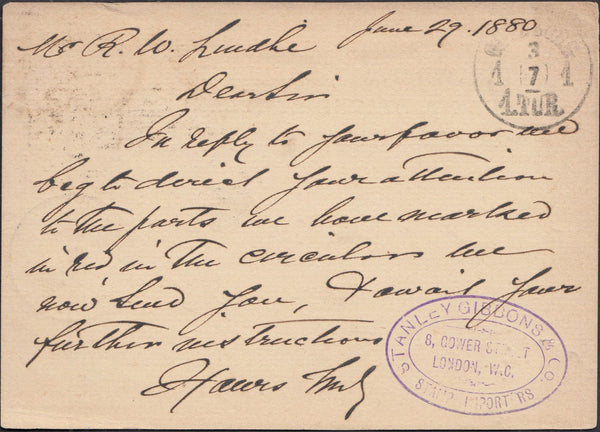 June 29. 1880
Mr R. W.
Dear Sir
In reply to your favor we
beg to direct your attention
to the parts we have marked
in red in the circulars we
now send you, & await your
further instructions
Yours truly
3
1 7 1
1.TUR.
STANLEY GIBBONS & CO.
8, GOWER STREET
LONDON, W.C.
STAMP IMPORTERS